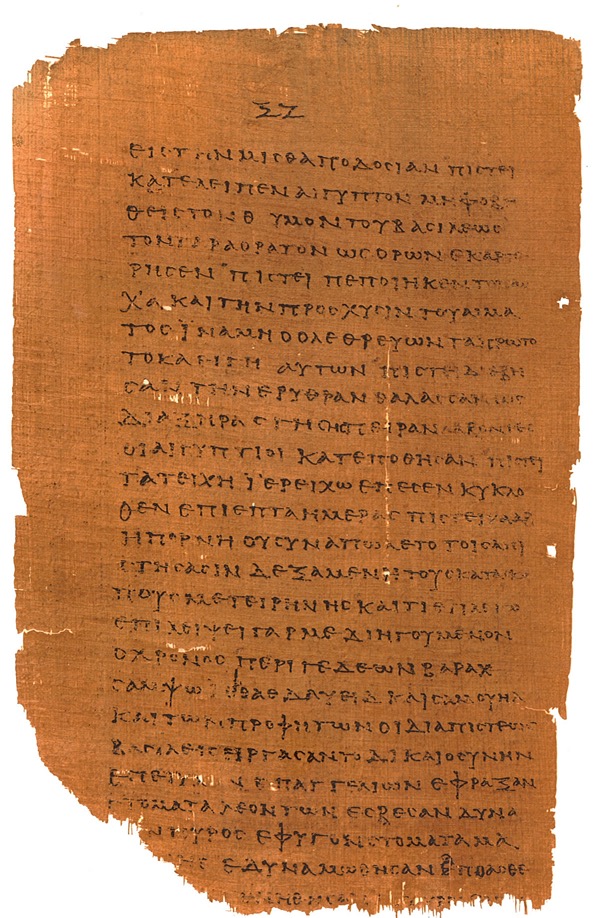 ΞΖ
ΕΙϹ ΤΗΝ ΜΙϹΘΑΠΟΔΟϹΙΑΝ ΠΙϹΤΕΙ
ΚΑΤΕΛΕΙΠΕΝ ΑΙΓΥΠΤΟΝ ΜΗ ΦΟΒΗ
ΘΕΙϹ ΤΟΝ ΘΥΜΟΝ ΤΟΥ ΒΑϹΙΛΕΩϹ
ΤΟΝ ΓΑΡ ΑΟΡΑΤΟΝ ΩϹ ΟΡΩΝ ΕΚΑΡΤΕ
ΡΗϹΕΝ ΠΙϹΤΕΙ ΠΕΠΟΙΗΚΕΝ
ΧΑ ΚΑΙ ΤΗΝ ΠΡΟϹΧΥϹΙΝ ΤΟΥ ΑΙΜΑ
ΤΟϹ ΪΝΑ ΜΗ Ο ΟΛΕΘΡΕΥΩΝ ΤΑ ΠΡΩΤΟ
ΤΟΚΑ ΘΙΓΗ ΑΥΤΩΝ ΠΙϹΤΕΙ ΔΙΕΒΗ
ϹΑΝ ΤΗΝ ΕΡΥΘΡΑΝ ΘΑΛΑϹϹΑΝ ΩϹ
ΔΙΑ ΞΗΡΑϹ ΓΗϹ ΗϹ ΠΕΙΡΑΝ ΛΑΒΟΝΤΕϹ
ΟΙ ΑΙΓΥΠΤΙΟΙ ΚΑΤΕΠΟΘΗϹΑΝ ΠΙϹΤΕΙ
ΤΑ ΤΕΙΧΗ ΪΕΡΕΙΧΩ ΕΠΕϹΕΝ ΚΥΚΛΩ
ΘΕΝ ΕΠΙ ΕΠΤΑ ΗΜΕΡΑϹ ΠΙϹΤΕΙ ΡΑΑΒ
Η ΠΟΡΝΗ ΟΥ ϹΥΝΑΠΩΛΕΤΟ ΤΟΙϹ ΑΠΙ
ϹΤΗϹΑϹΙΝ ΔΕΞΑΜΕΝΗ ΤΟΥϹ ΚΑΤΑϹΚΟ
ΠΟΥϹ ΜΕΤ ΕΙΡΗΝΗϹ ΚΑΙ ΤΙ ΕΤΙ ΛΕΓΩ
ΕΠΙΛΕΙΨΕΙ ΓΑΡ ΜΕ ΔΙΗΓΟΥΜΕΝΟΝ
Ο ΧΡΟΝΟϹ ΠΕΡΙ ΓΕΔΕΩΝ ΒΑΡΑΧ
ϹΑΜΨΩ ΙΕΦΘΑΕ ΔΑΥΕΙΔ ΚΑΙ ϹΑΜΟΥΗΛ
ΚΑΙ ΤΩΝ ΠΡΟΦΗΤΩΝ ΟΙ ΔΙΑ ΠΙϹΤΕΩϹ
ΒΑϹΙΛΕΙϹ ΕΙΡΓΑϹΑΝΤΟ ΔΙΚΑΙΟϹΥΝΗΝ
ΕΠΕΤΥΧΟΝ ΕΠΑΓΓΕΛΙΩΝ ΕΦΡΑΞΑΝ
ϹΤΟΜΑΤΑ ΛΕΟΝΤΩΝ ΕϹΒΕϹΑΝ ΔΥΝΑ
ΜΙΝ ΠΥΡΟϹ ΕΦΥΓΟΝ ϹΤΟΜΑΤΑ ΜΑ
ΕΔΥΝΑΜΩΘΗϹΑΝ ΑΠΟ ΑϹΘΕ